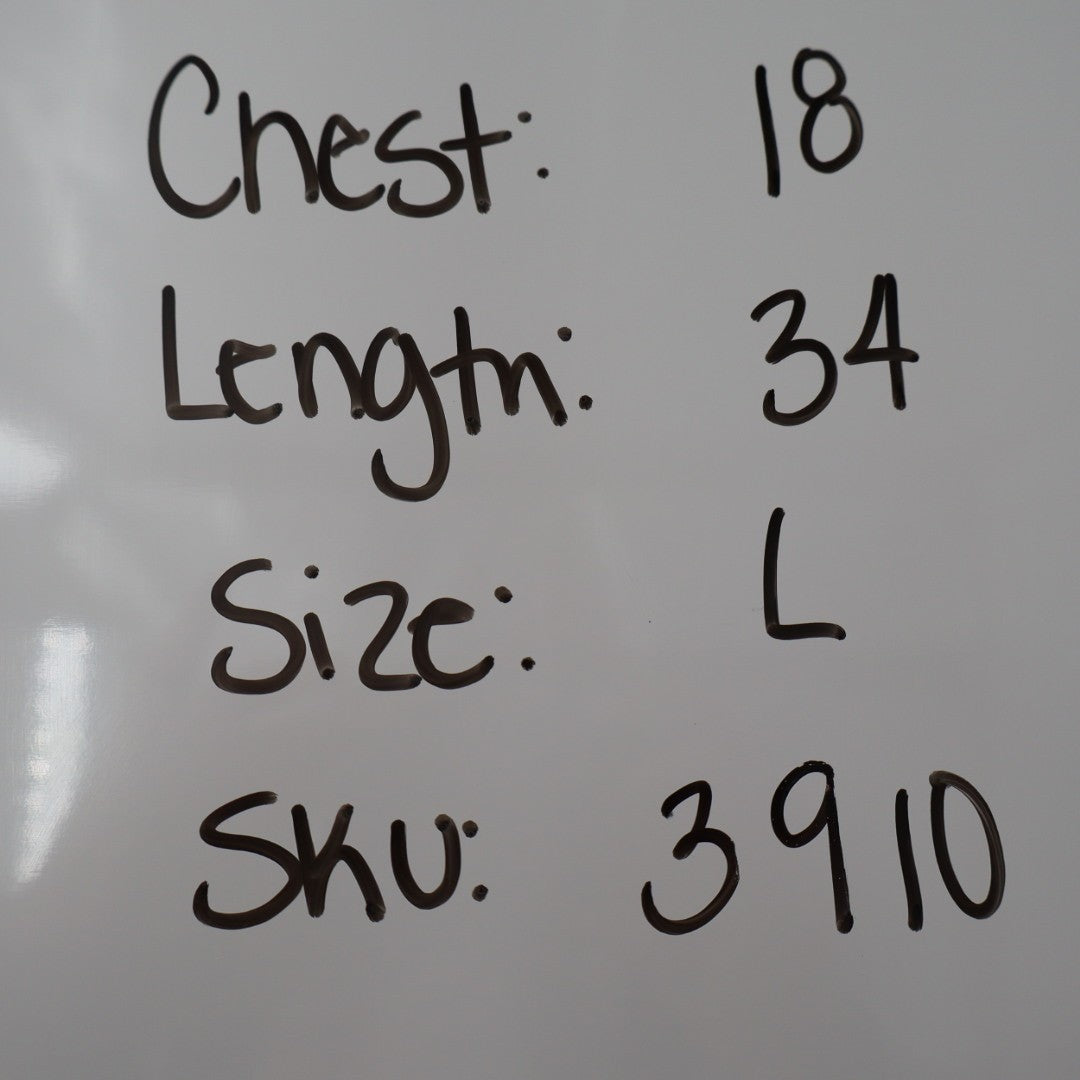 Chest: 18
Length: 34
Size: L
SKU: 3910